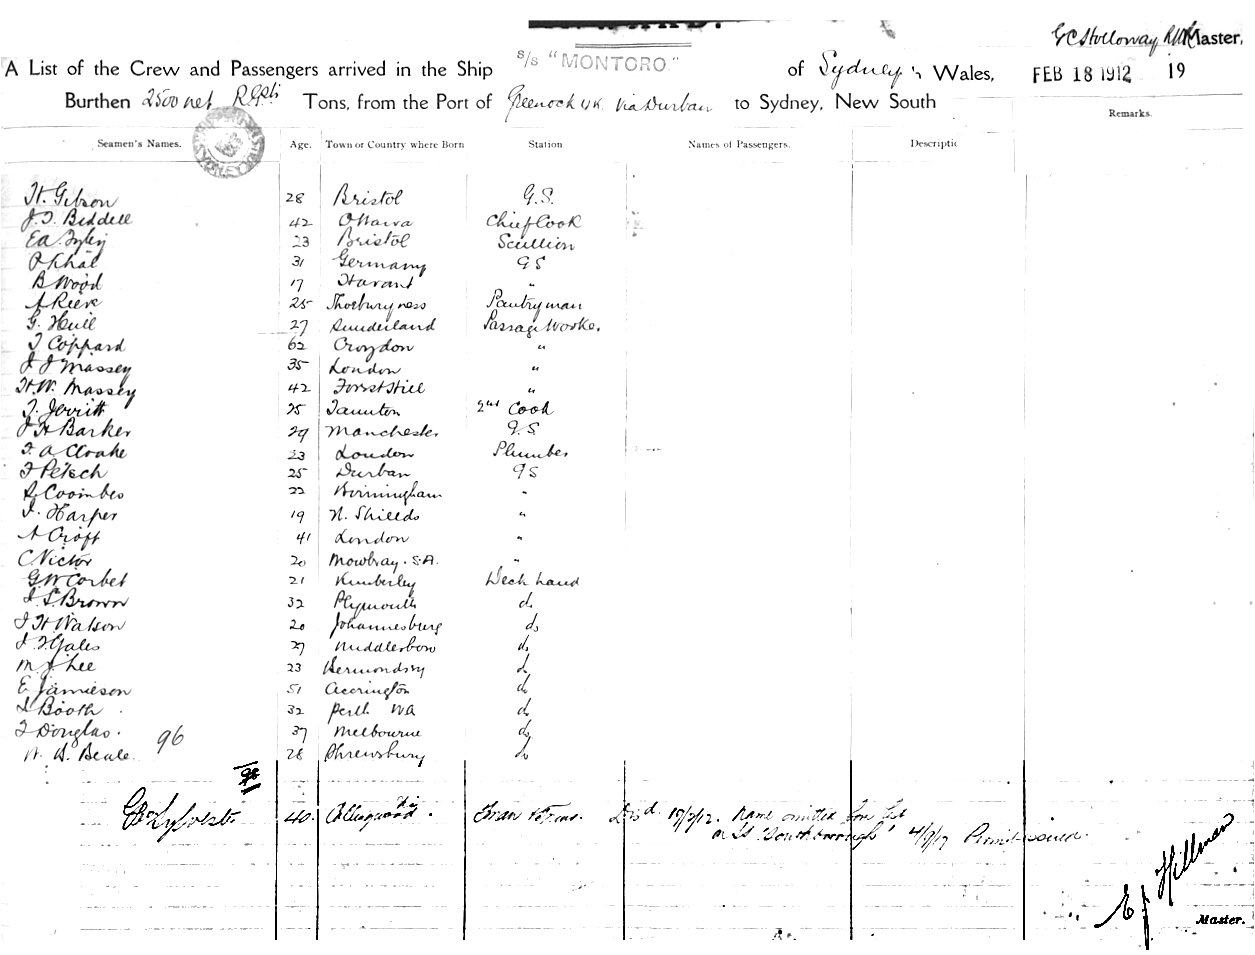 G C Holloway R.N.R Master,
A List of the Crew and Passengers arrived in the Ship S/S "MONTORO" of Sydney Wales, FEB 18 1912 19
Burthen 2500 net Tons, from the Port of Greenock UK Via Durban to Sydney, New South
Remarks.
Seamen's Names. Age. Town or Country where Born Station Names of Passengers. Descriptic
H. Gibson 28 Bristol G.S.
J. T. Biddell 42 Ottawa Chief Cook
23 Bristol Scullion
31 Germany G S
B Wood 17 Havant "
A Reeve 25 Shoeburyness Pantryman
G. Hull 27 Sunderland Passage Worke.
T Coppard 62 Croydon "
J J Massey 35 London "
H.W. Massey 42 Forest Hill "
T. Jerritt 25 Taunton 2nd Cook
J H Barker 29 Manchester G.S
F. A Cloake 23 London Plumber
F Petsch 25 Durban G S
S Coombes 22 Birmingham "
J. Harper 19 N. Shields "
A Croft 41 London "
C Victor 20 Mowbray. S.A. "
G.W Corbet 21 Kimberley Deck hand
J. S. Brown 32 Plymouth do
J H Watson 20 Johannesburg do
J. T. Gales 27 Middlesboro do
M. J. Lee 23 Bermondsey do
E Jamieson 51 Accrington do
J Booth 32 Perth WA do
J Douglas. 37 Melbourne do
W. S. Beale 28 Shrewsbury do
96
96
40. Collingwood Name omitted from list
on SS "Southborough" 4/9/17 Permit issued.
E J Hillman
Master.